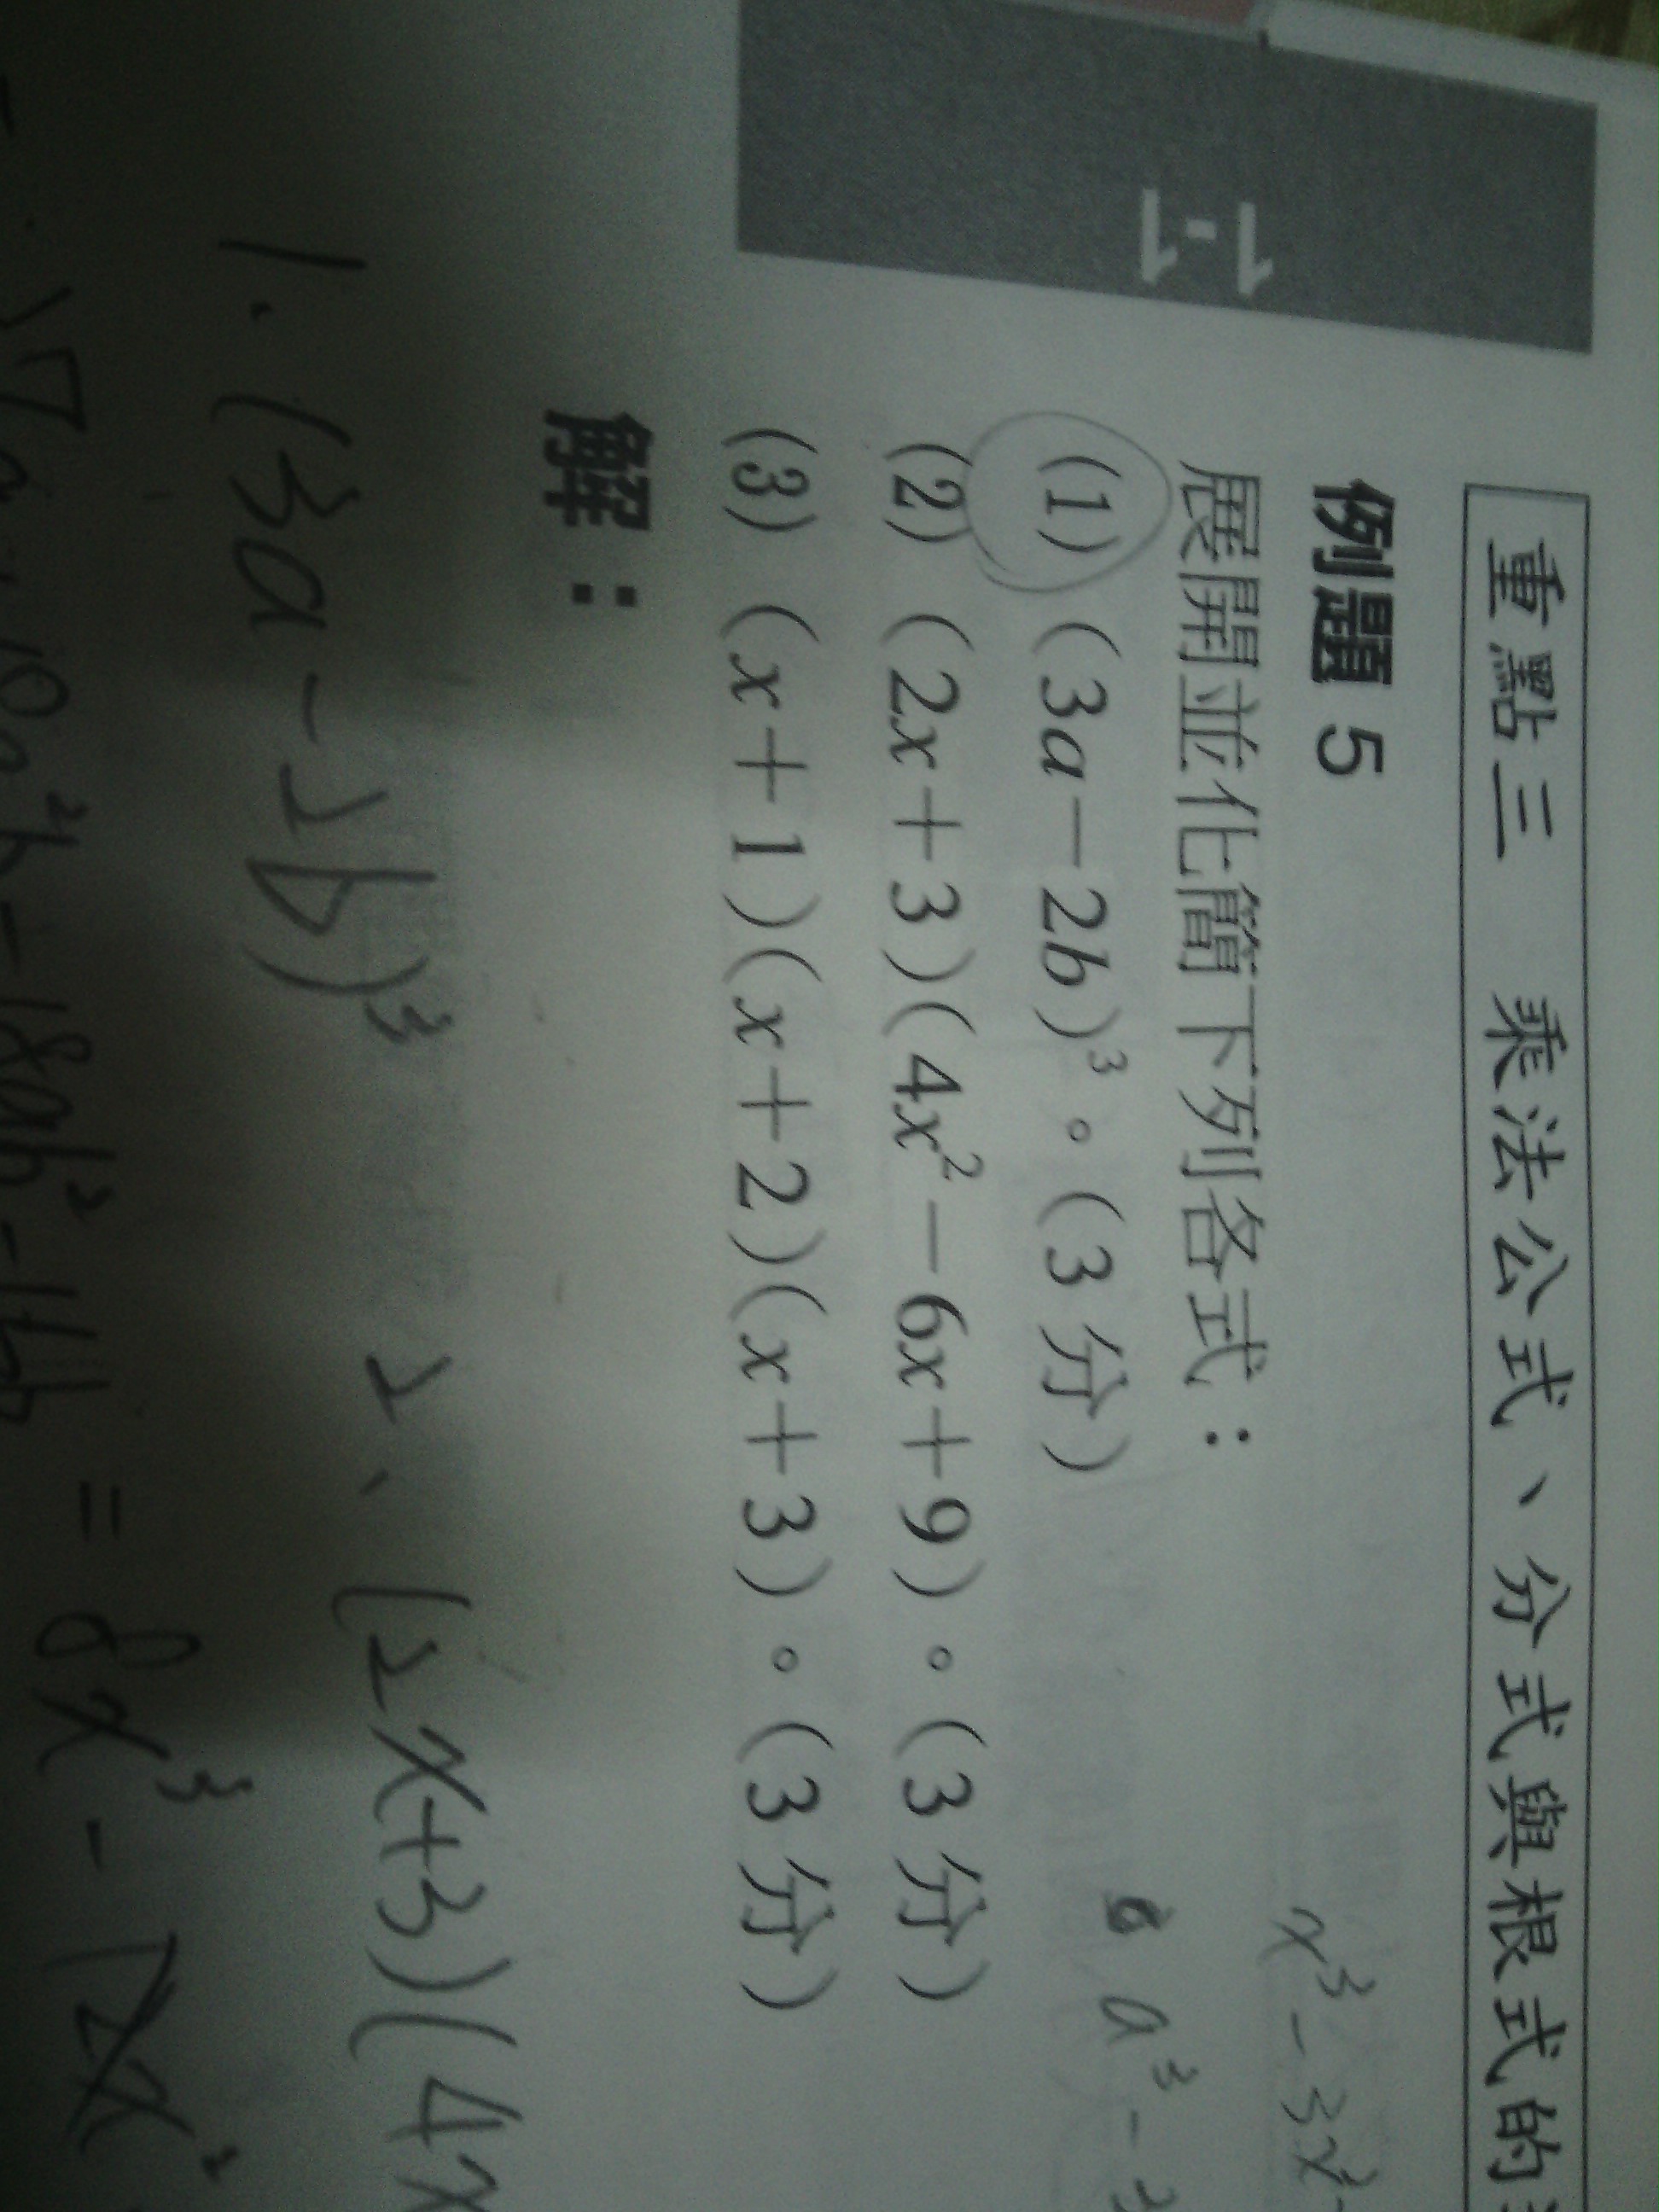 1-1
重點三 乘法公式、分式與根式的
例題 5
展開並化簡下列各式：
(1) (3a－2b)³。(3 分)
(2) (2x＋3)(4x²－6x＋9)。(3 分)
(3) (x＋1)(x＋2)(x＋3)。(3 分)
x³-3x²-
a³-
解：
1. (3a-2b)³
2、(2x+3)(4x
= 8x³-12x²